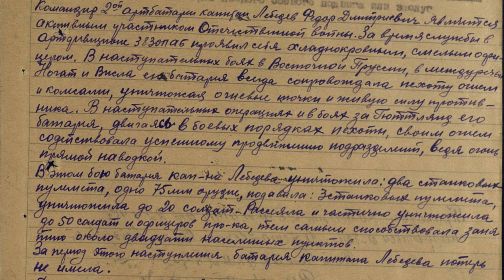 Командир 2ой артбатареи капитан Лебцев Федор Дмитриевич является
активным участником Отечественной войны. За время службы в
артдивизионе проявил себя хладнокровным, смелым офи-
цером. В наступательных боях в Восточной Пруссии, в междуречье
и Висла его батарея всегда сопровождала пехоту огнем
и колесами, уничтожая огневые точки и живую силу против-
ника. В наступательных операциях и в боях за его
батарея, двигаясь в боевых порядках пехоты, своим огнем
содействовала успешному продвижению подразделений, ведя огонь
прямой наводкой.
В этом бою батарея кап-на Лебцева уничтожила: два станковых
пулемета, одно 75мм орудие, подавила: 3 станковых пулемета,
уничтожила до 20 солдат. Рассеяла и частично уничтожила
до 50 солдат и офицеров пр-ка, тем самым способствовала заня
тию около двадцати населенных пунктов.
За период этого наступления батарея капитана Лебцева потерь
не имела.